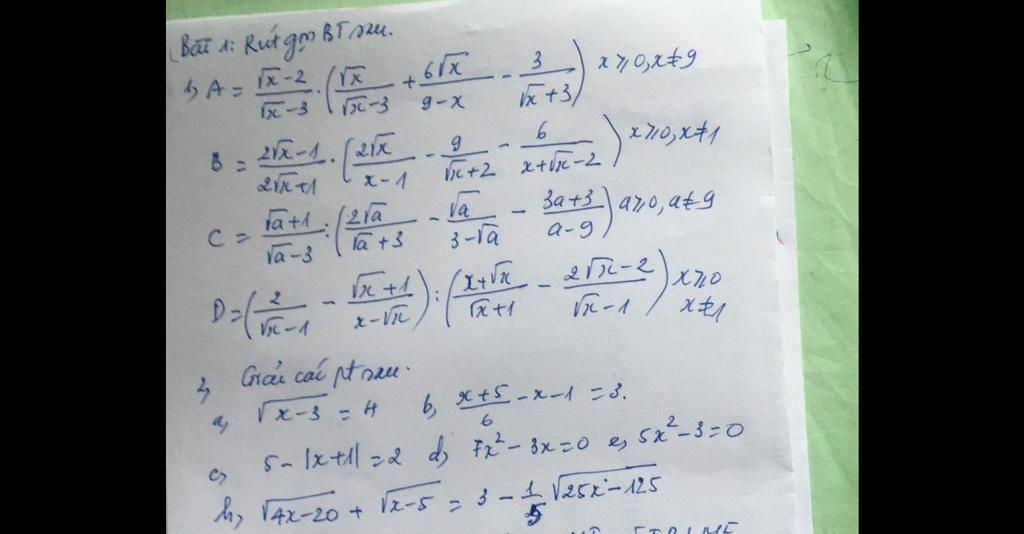 Bài 1: Rút gọn BT sau.
1, A = \frac{\sqrt{x}-2}{\sqrt{x}-3} \cdot \left( \frac{\sqrt{x}}{\sqrt{x}-3} + \frac{6\sqrt{x}}{9-x} - \frac{3}{\sqrt{x}+3} \right) x ⩾ 0, x ≠ 9
B = \frac{2\sqrt{x}-1}{2\sqrt{x}+1} \cdot \left( \frac{2\sqrt{x}}{x-1} - \frac{9}{\sqrt{x}+2} - \frac{6}{x+\sqrt{x}-2} \right) x ⩾ 0, x ≠ 1
C = \frac{\sqrt{a}+1}{\sqrt{a}-3} : \left( \frac{2\sqrt{a}}{\sqrt{a}+3} - \frac{\sqrt{a}}{3-\sqrt{a}} - \frac{3a+3}{a-9} \right) a ⩾ 0, a ≠ 9
D = \left( \frac{2}{\sqrt{x}-1} - \frac{\sqrt{x}+1}{x-\sqrt{x}} \right) : \left( \frac{x+\sqrt{x}}{\sqrt{x}+1} - \frac{2\sqrt{x}-2}{\sqrt{x}-1} \right) x ⩾ 0 x ≠ 1
2, Giải các pt sau.
a, \sqrt{x-3} = 4 b, \frac{x+5}{6} - x - 1 = 3.
c, 5 - |x+1| = 2 d, 7x^2 - 3x = 0 e, 5x^2 - 3 = 0
h, \sqrt{4x-20} + \sqrt{x-5} = 3 - \frac{1}{5}\sqrt{25x-125}